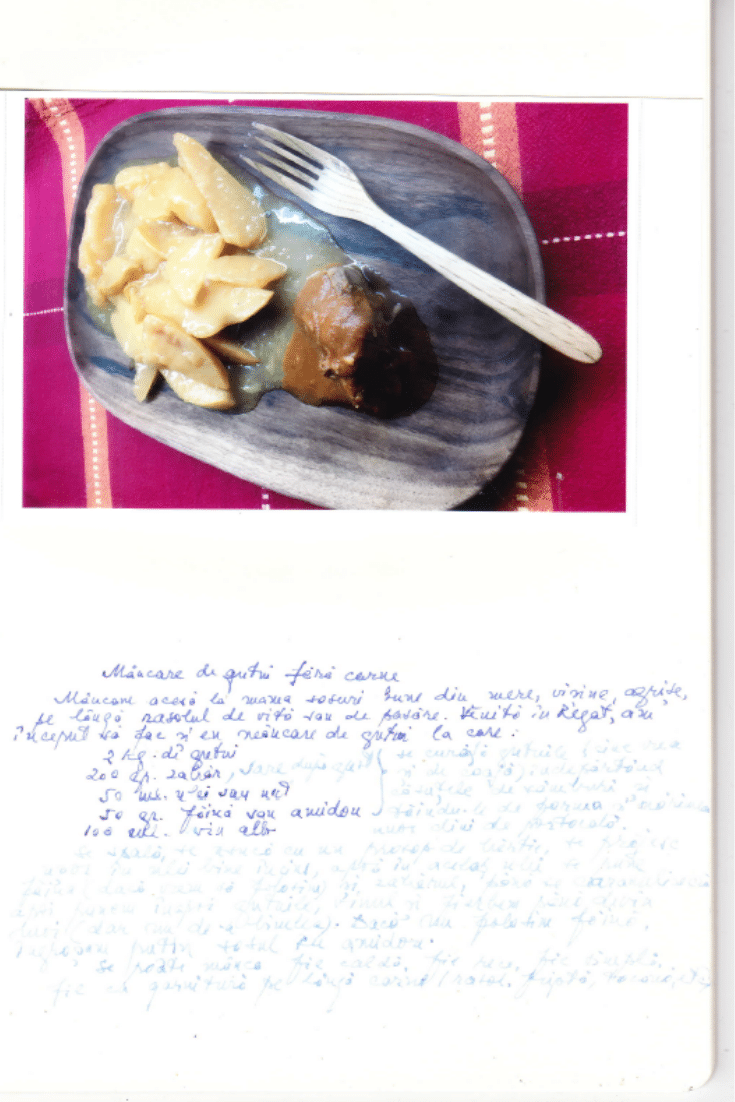 Mâncare de gutui fără carne
Mâncam acasă la mama sosuri bune din mere, vișine, agrișe,
pe lângă rasolul de vită sau de pasăre. Venită în Regat, am
început să fac și eu mâncare de gutui la care:
2 kg. de gutui
200 gr. zahăr, sare după gust
50 ml. ulei sau unt
50 gr. făină sau amidon
100 ml. vin alb
se curăță gutuile bine
și de coajă, îndepărtând
căsuțele de sâmburi și
tăindu-le de forma și mărimea
unor felii de portocală.
Se spală, se cu un prosop de hârtie, se prăjesc
în ulei bine încins, apoi în același ulei se pune
făina (dacă vrem să folosim) și zahărul, până se caramelizează
apoi punem înapoi gutuile, vinul și fierbem până devin
moi (dar nu de tot). Dacă nu folosim făină,
îngroșăm puțin sosul cu amidon.
Se poate mânca fie caldă, fie rece, fie simplă,
fie ca garnitură pe lângă carne (rasol, friptă, tocană, etc)